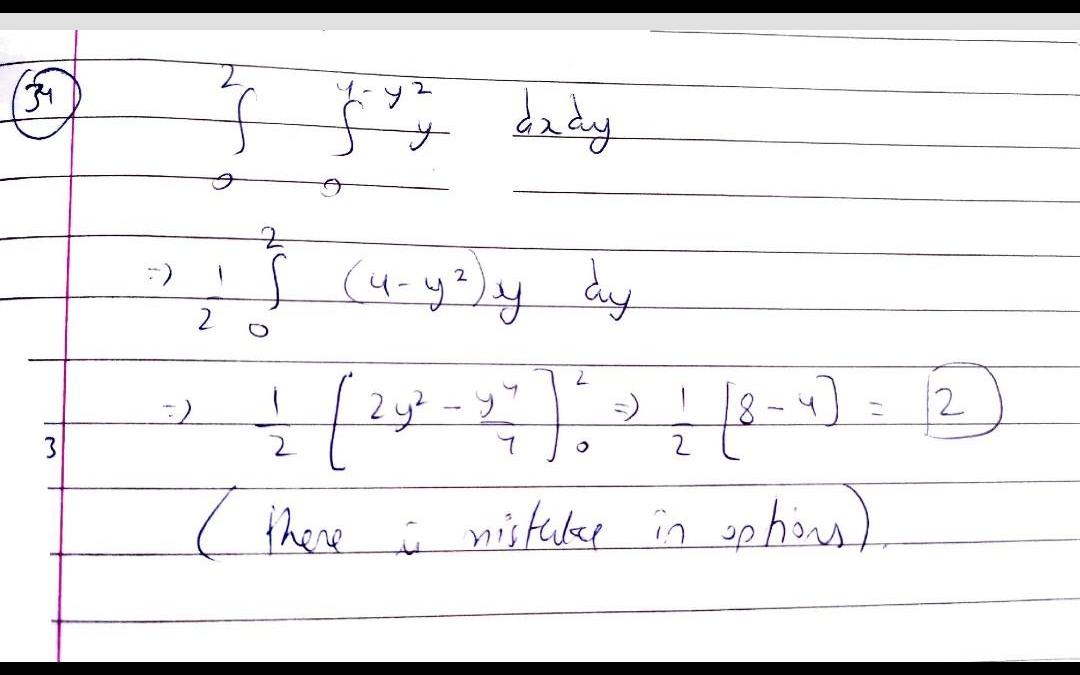 34 ∫₀² ∫₀^(4-y²) y dx dy
=) 1/2 ∫₀² (4-y²) y dy
=) 1/2 [2y² - y⁴/4]₀² =) 1/2 [8-4] = 2
3
(there is mistake in options).